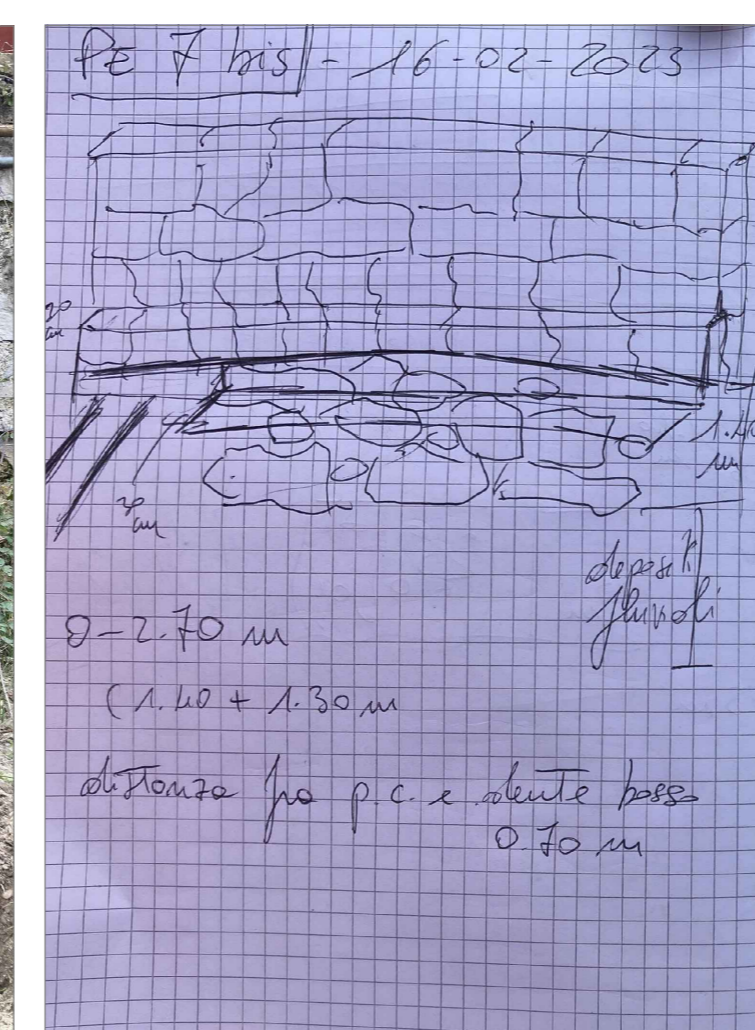 PE 7 bis - 16-02-2023
20
cm
1.40
m
20
cm
depositi
fluviali
0-2.70 m
(1.40 + 1.30 m
distanza fra p.c. e dente basso
0.70 m